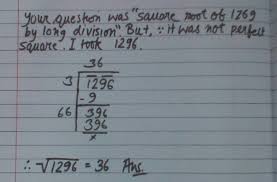 Your question was "square root of 1269
by long division". But, ∵ it was not perfect
square. I took 1296.
36
3 1296
-9
66 396
396
x
∴ √1296 = 36 Ans.